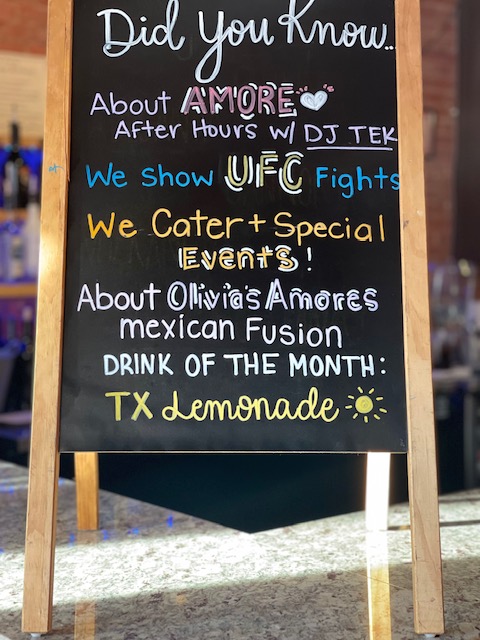 Did You Know..
About AMORE
After Hours w/ DJ TEK
We Show UFC Fights
We Cater + Special
Events!
About Olivia's Amores
mexican Fusion
DRINK OF THE MONTH:
TX Lemonade